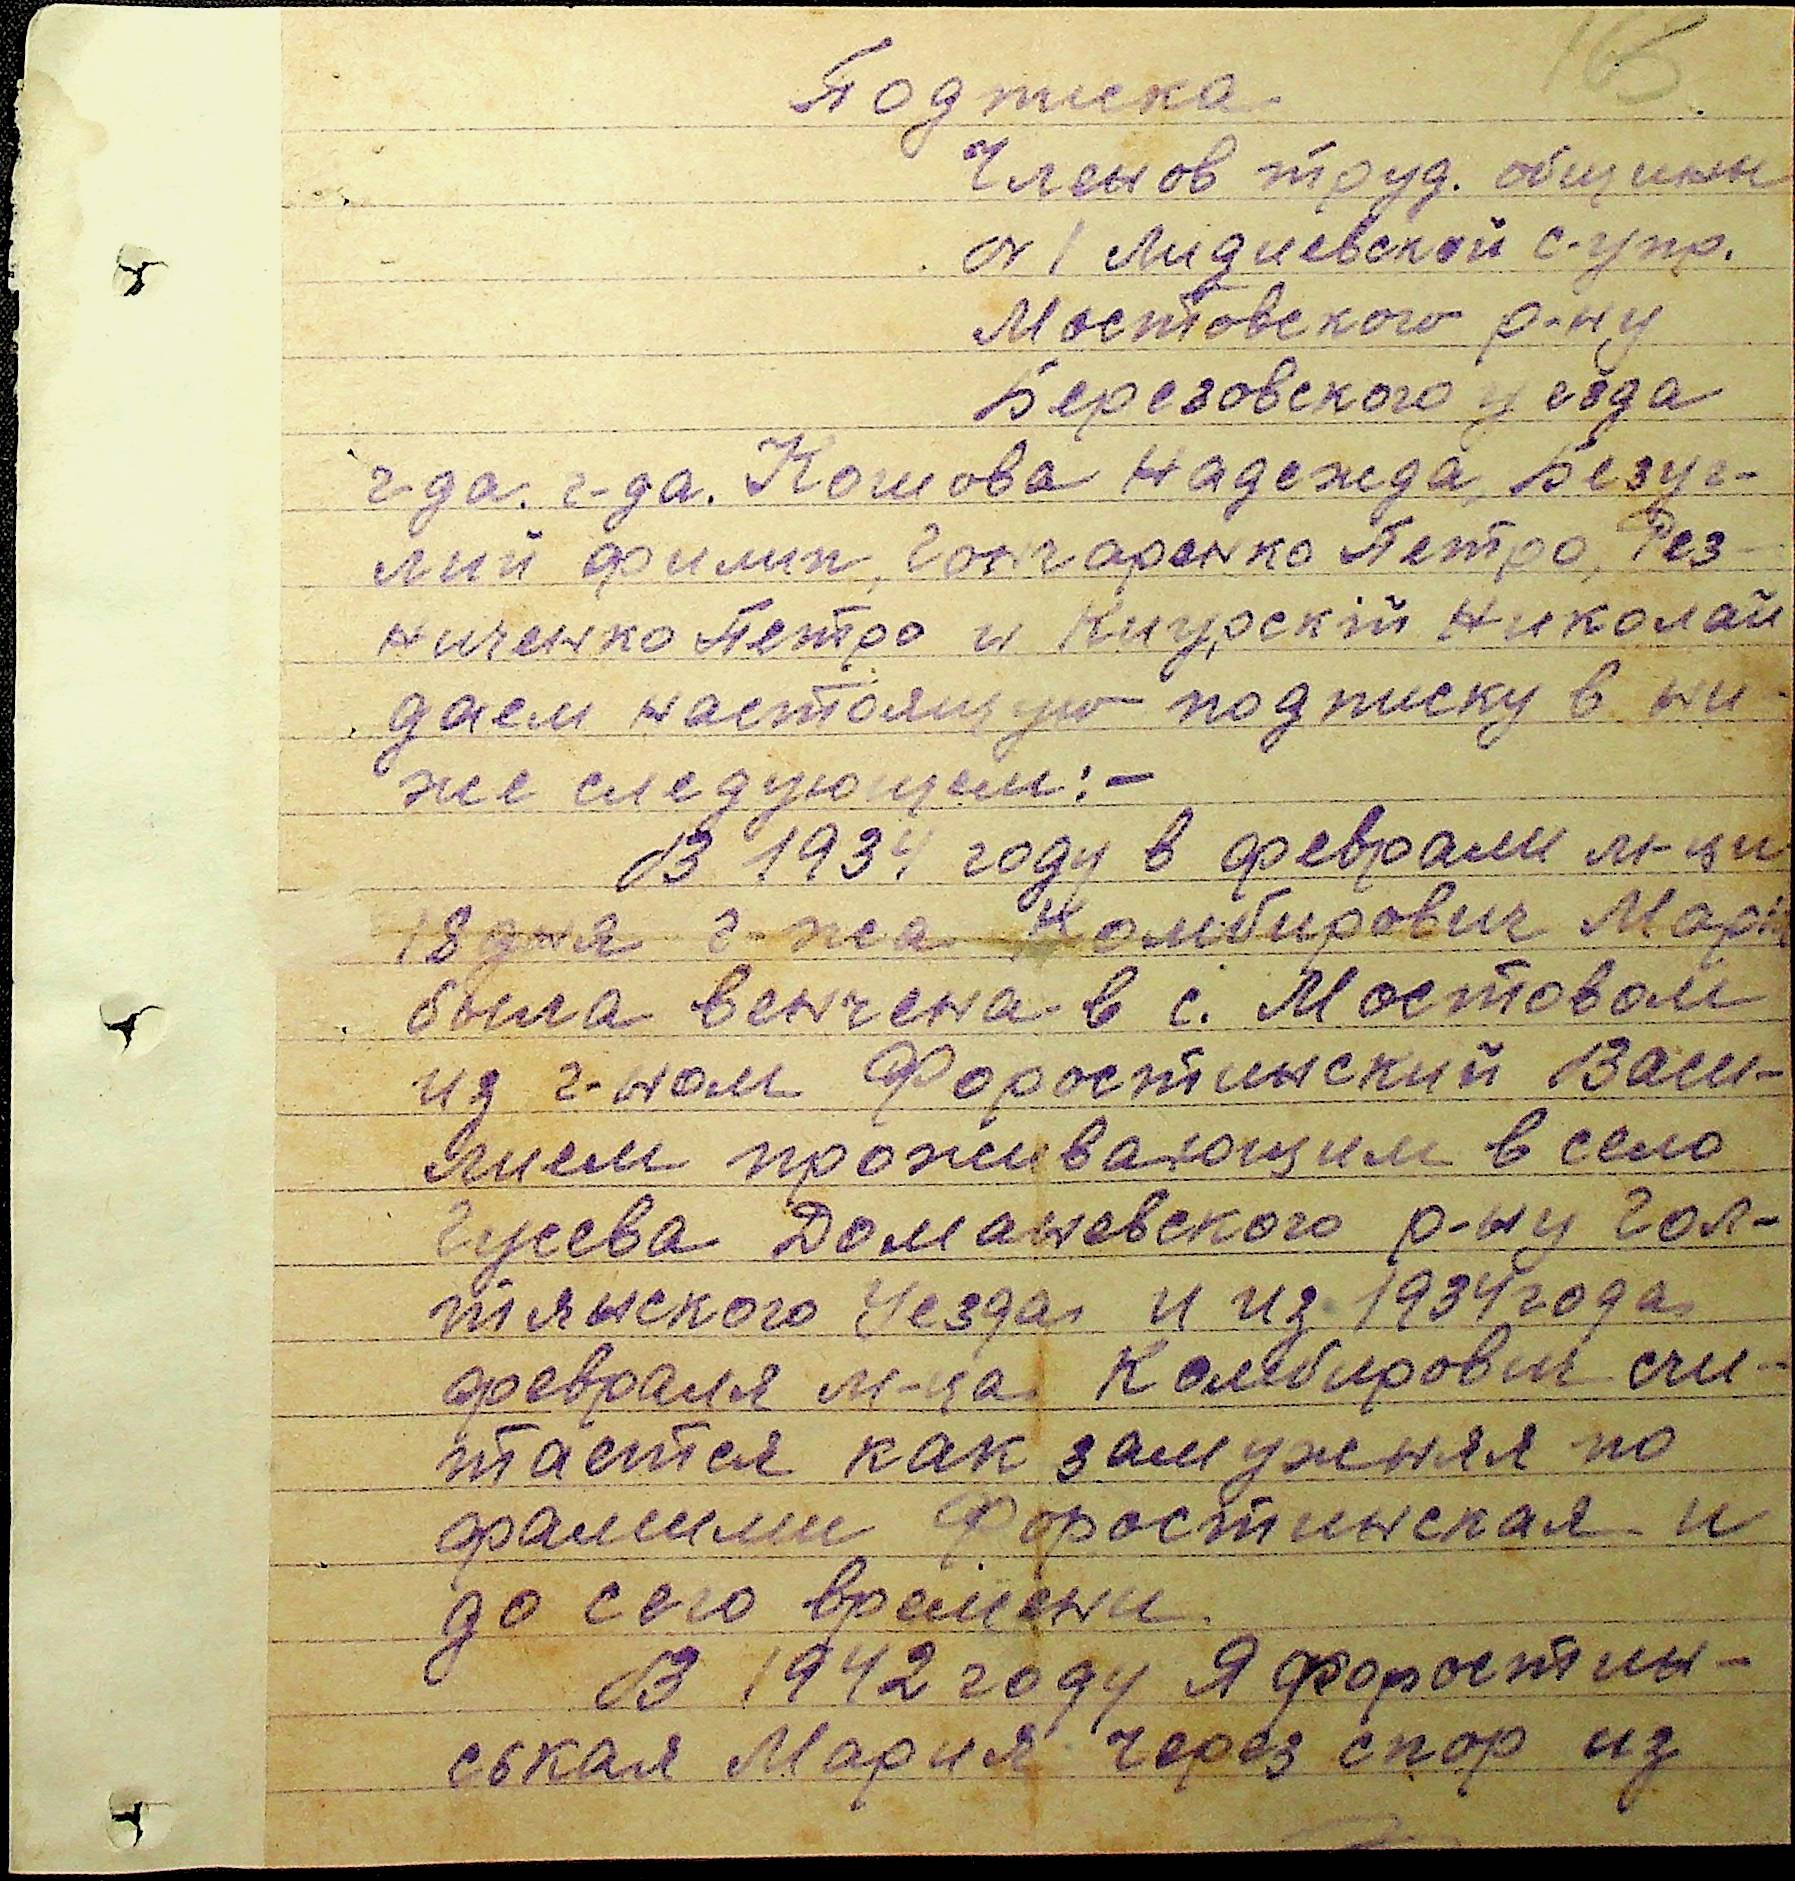 165
Подписка
Членов труд. общины
№ 1 Лидиевской с-упр.
Мостовского р-ну
Березовского уезда
г-да. г-да. Кошова Надежда, Безуг-
лий Филип, Гончаренко Петро, Рез-
ниченко Петро и Кигурскій Николай
даем настоящую подписку в ни-
же следующем:-
В 1934 году в феврали м-ци
18 дня г-жа Комбирович Марія
была венчена в с. Мостовом
из г-ном Форостинский Васи-
лием проживающим в село
Гусева Доманевского р-ну Гол-
тянского Уезда и из 1934 года
февраля м-ца Комбирович счи-
тается как замужняя по
фамилии Форостинская и
до сего времени.
В 1942 году Я Форостин-
ськая Мария через спор из